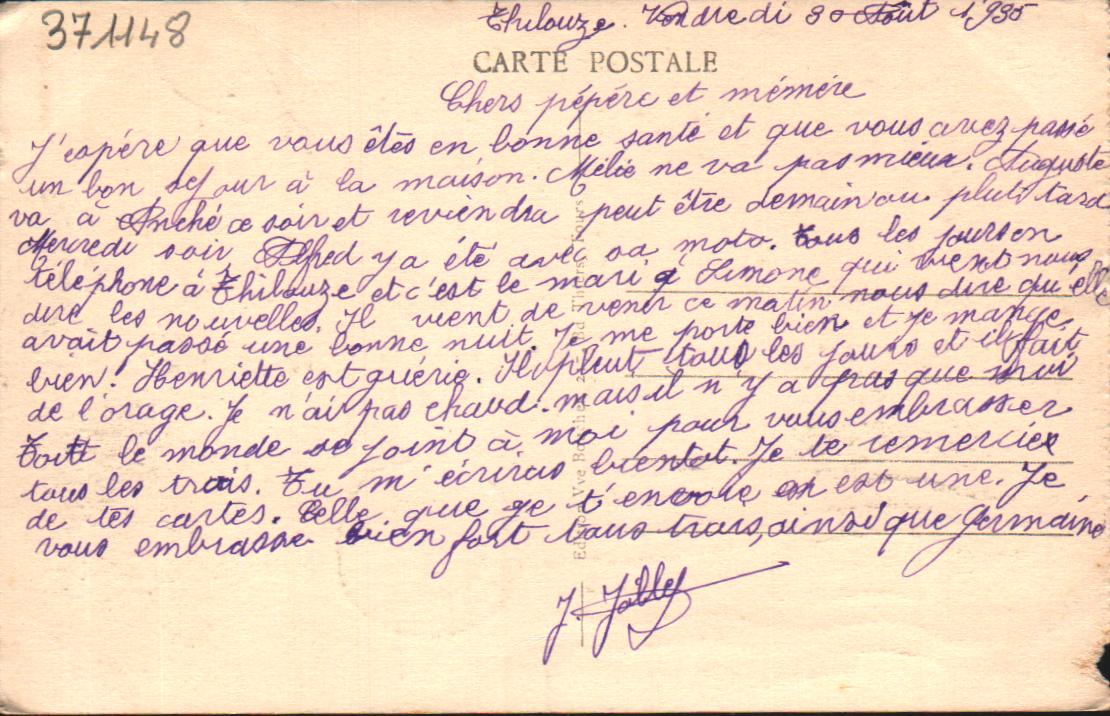 371148
Thilouze. Vendredi 30 Août 1935
CARTE POSTALE
Chers pépére et mémére
J'espére que vous êtês en bonne santé et que vous avez passé
un bon sejour à la maison. Mélie ne va pas mieux. Auguste
va à Anché ce soir et reviendra peut être demain ou plus tard
Mercredi soir Alfred y a été avec sa moto. Tous les jours on
téléphone à Thilouze et c'est le mari à Simone qui vient nous
dire les nouvelles. Il vient de venir ce matin nous dire qu'elle
avait passé une bonne nuit. Je me porte bien et je mange
bien. Henriette est guérie. Il pleut tous les jours et il fait
de l'orage. Je n'ai pas chaud. mais il n'y a pas que moi
Tout le monde se joint à moi pour vous embrasser
tous les trois. Tu m'écriras bientot. Je te remercie
de tes cartes. Celle que ge t'envoie en est une. Je
vous embrasse bien fort tous trois, ainsi que Germaine
J. Jobley
Ed. Vve